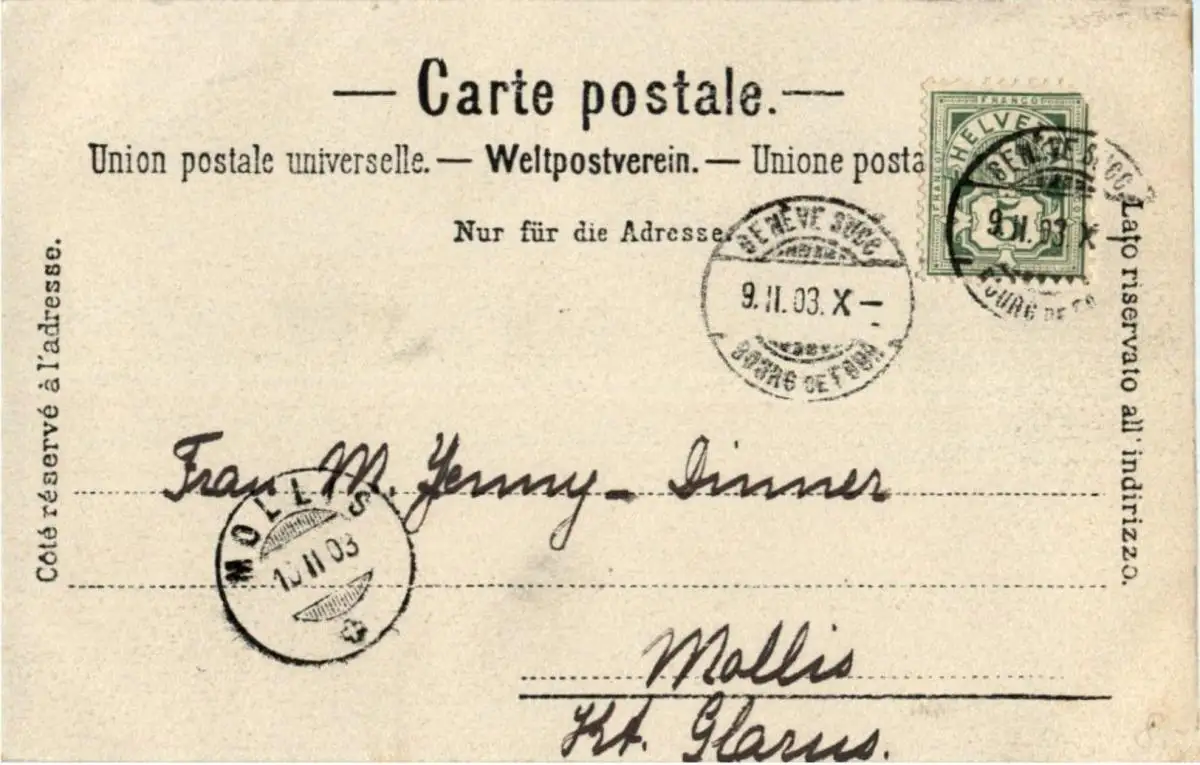 — Carte postale. —
Union postale universelle. — Weltpostverein. — Unione posta
Nur für die Adresse.
Côté réservé à l'adresse.
Lato riservato all'indirizzo.
FRANCO
HELVE
FRANCO
5
GENÈVE SUCC
9.II.03.X—
BOURG DE FOUR
GENÈVE SUCC
9.II.03.X—
BOURG DE FO
Frau M. Jenny-Dinner
MOLLIS
10 II 03
Mollis
Kt. Glarus.